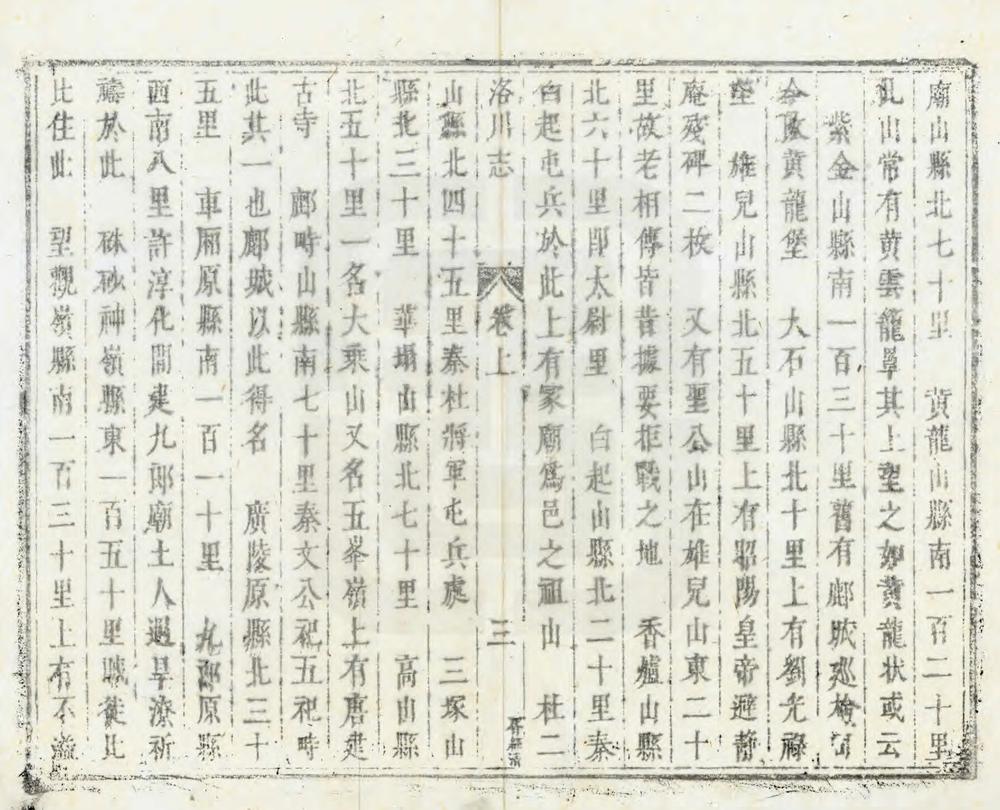 廟山縣北七十里　黃龍山縣南一百二十里
此山常有黄雲籠罩其上望之如黄龍状或云
　紫金山縣南一百三十里舊有鄜畎廵檢司
今改黄龍堡　大石山縣北十里上有劉光祿
塋　雄兒山縣北五十里上有昭陽皇帝避静
庵殘碑二枚　又有聖公山在雄兒山東二十
里故老相傳皆昔據要拒戰之地　香爐山縣
北六十里即太尉里　白起山縣北二十里秦
白起屯兵於此上有冢廟爲邑之祖山　杜二
洛川志　卷上　三
山縣北四十五里秦杜將軍屯兵處　三塚山
縣北三十里　華塌山縣北七十里　高山縣
北五十里一名大乘山又名五峯嶺上有唐建
古寺　鄜畤山縣南七十里秦文公祀五祀畤
此其一也鄜城以此得名　廣陵原縣北三十
五里　車厢原縣南一百一十里　九郎原縣
西南八里許淳化間建九郎廟土人遇旱潦祈
禱於此　硃砂神嶺縣東一百五十里城徙比
比住此　望觀嶺縣南一百三十里上有不溢